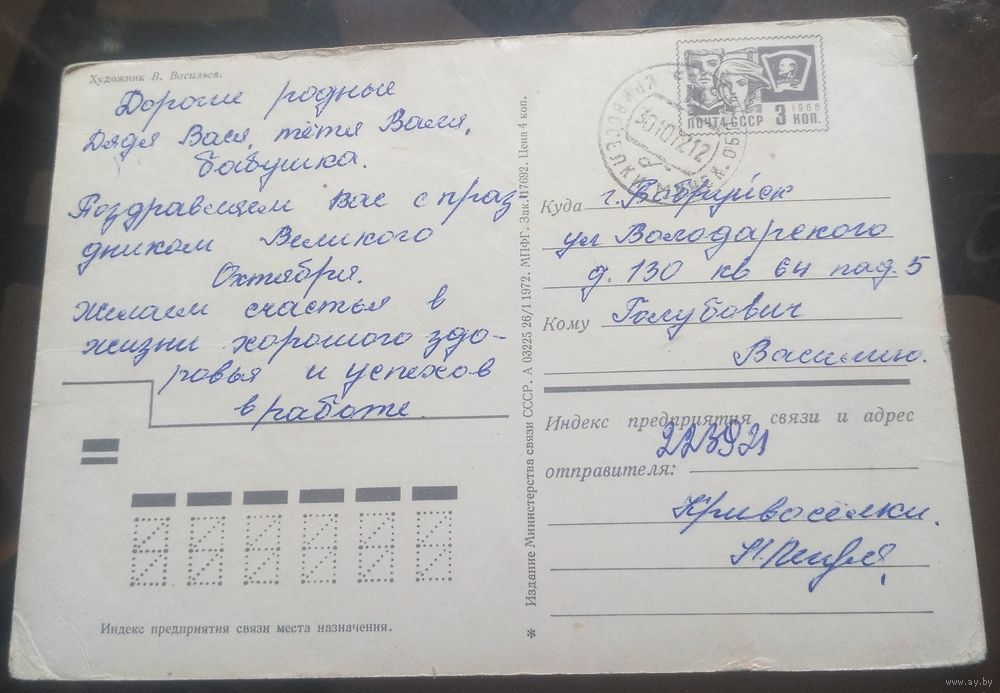 Художник В. Васильев.
Дорогие родные
Дядя Вася, тётя Валя,
бабушка.
Поздравляем Вас с праз
дником Великого
Октября.
Желаем счастья в
жизни хорошого здо-
ровья и успехов
в работе.
Индекс предприятия связи места назначения.
✱ Издание Министерства связи СССР. А 03225 26/I 1972. МПФГ. Зак. 117692. Цена 4 коп.
ПОЧТА СССР 3 КОП.
1966
301072 12
Куда г. Бобруйск
ул Володарского
д. 130 кв 64 пад. 5
Кому Голубович
Василию.
Индекс предприятия связи и адрес
223921
отправителя:
Кривосёлки.
www.ay.by